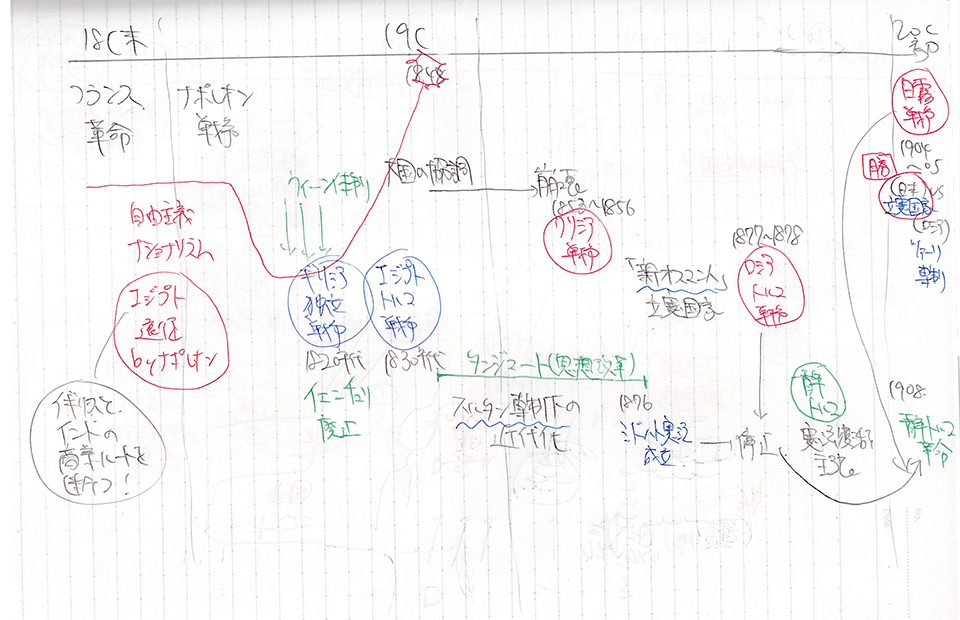 18C末
19C
20C初
フランス
革命
ナポレオン
戦争
1848
自由主義
ナショナリズム
エジプト
遠征
byナポレオン
イギリスと
インドの
商業ルートを
断つ!
ウィーン体制
ギリシア
独立
戦争
1820年代
イェニチェリ
廃止
エジプト
トルコ
戦争
1830年代
大国の協調
崩壊
1853~1856
クリミア
戦争
タンジマート(恩恵改革)
スルタン専制下の
近代化
「新オスマン人」
立憲国家
1876
ミドハト憲法
成立
1877~1878
ロシア
トルコ
戦争
停止
青年
トルコ
憲法復活を
主張
日露
戦争
1904
~05
勝
(日本)vs
立憲国家
(ロシア)
ツァーリ
専制
1908
青年トルコ
革命